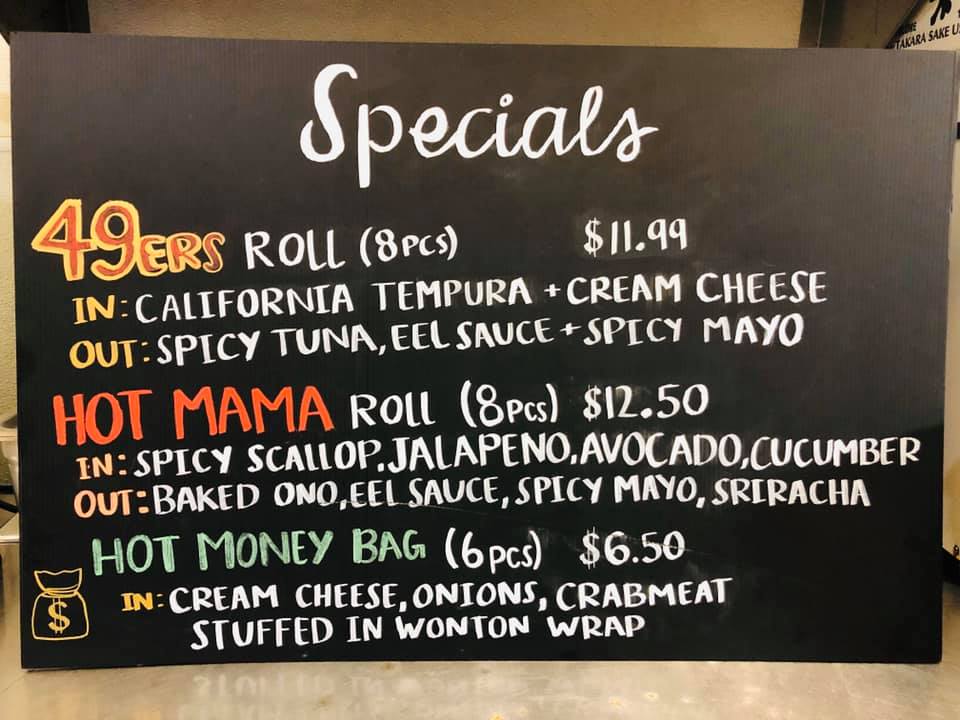 TAKARA SAKE
Specials
49ERS ROLL (8PCS) $11.99
IN: CALIFORNIA TEMPURA + CREAM CHEESE
OUT: SPICY TUNA, EEL SAUCE + SPICY MAYO
HOT MAMA ROLL (8PCS) $12.50
IN: SPICY SCALLOP, JALAPENO, AVOCADO, CUCUMBER
OUT: BAKED ONO, EEL SAUCE, SPICY MAYO, SRIRACHA
HOT MONEY BAG (6PCS) $6.50
IN: CREAM CHEESE, ONIONS, CRABMEAT
STUFFED IN WONTON WRAP
$